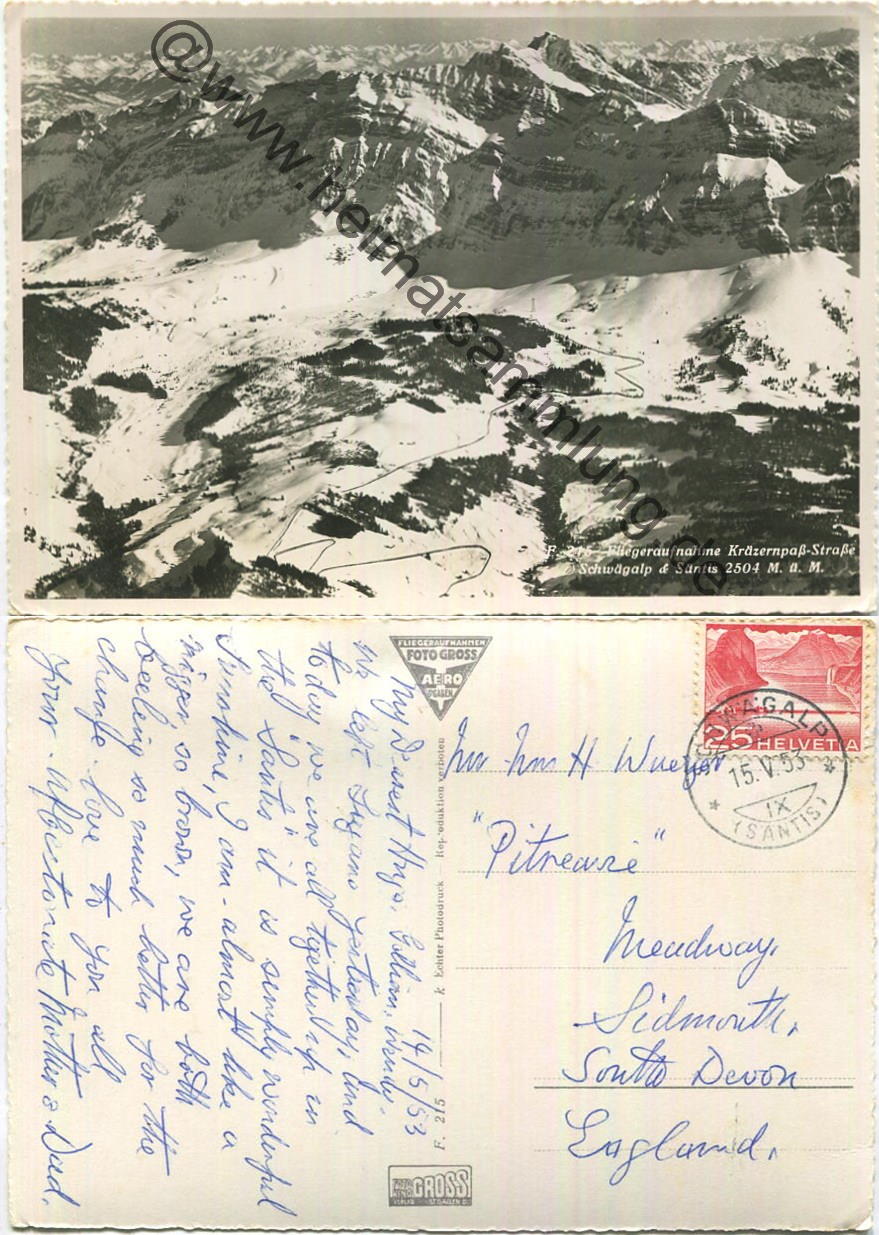 @www.heimatsammlung.de
F. 215 Fliegeraufnahme Kräzernpaß-Straße
Schwägalp & Säntis 2504 M. ü. M.
FLIEGERAUFNAHMEN
FOTO GROSS
AERO
ST. GALLEN
14/5/53
My Dearest Hugo, Gillian, Wendy.
We left Lugano yesterday, and
to day we are all together up in
the "Santis" it is simply wonderful
Sunshine, I am almost like a
nigger, so brown, we are both
feeling so much better for the
change. love to you all
Your Affectionate Mother & Dad.
F. 215 k Echter Photodruck — Reproduktion verboten
GROSS
ST. GALLEN
25 HELVETIA
SCHWÄGALP
15.V.53
IX
(SÄNTIS)
Mr Mrs H
"Pitrearie"
Meadway,
Sidmouth,
South Devon
England.